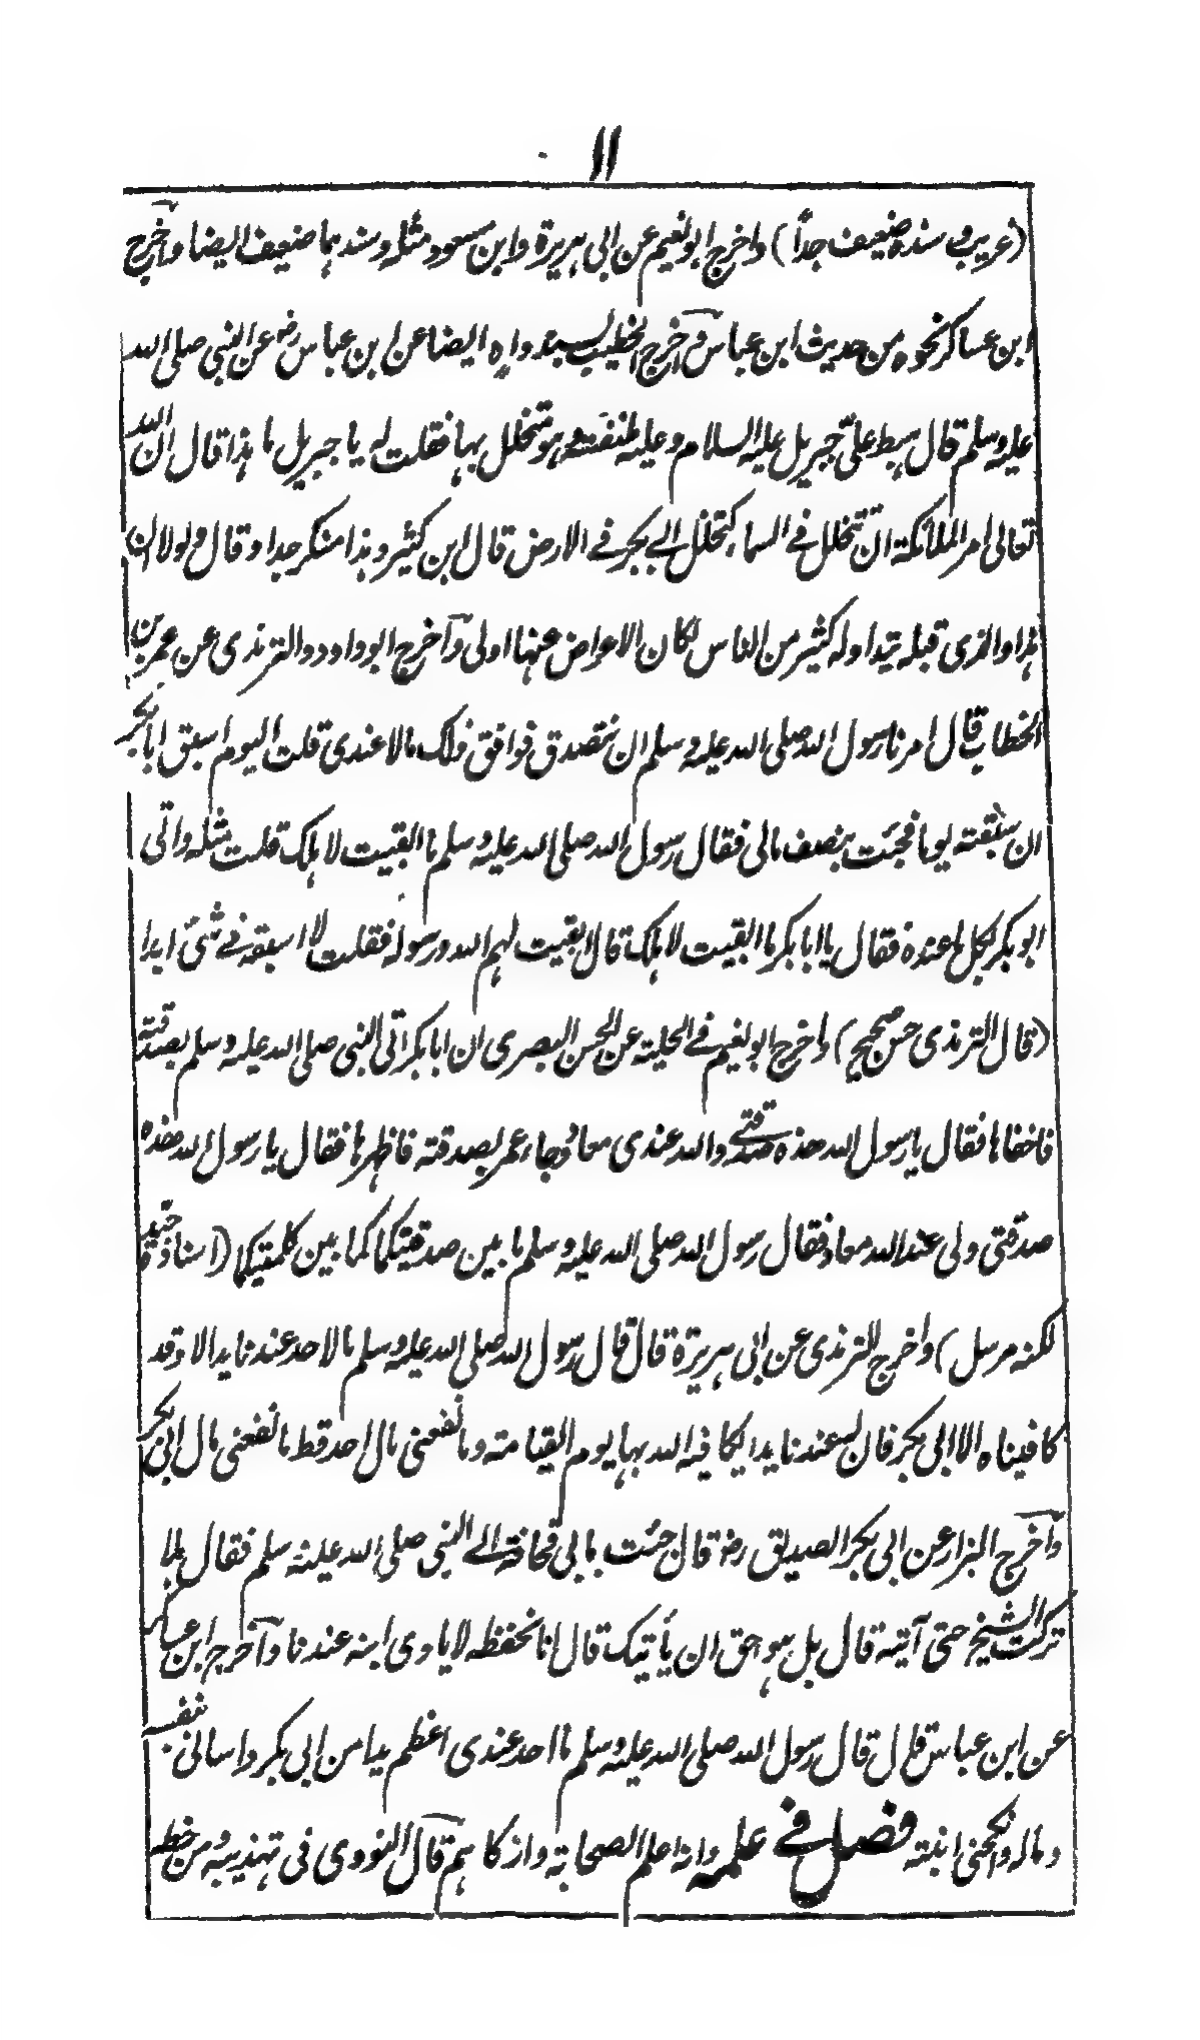 ١١
(غريب وسنده ضعيف جدًّا) واخرج ابو نعيم عن ابى هريرة وابن مسعود مثله وسندهما ضعيف ايضا واخرج
ابن عساكر نحوه من حديث ابن عباس واخرج الخطيب بسند واه ايضا عن ابن عباس رض عن النبى صلى الله
عليه وسلم قال هبط علىّ جبريل عليه السلام وعليه طنفسة وهو متخلل بها فقلت له يا جبريل ما هذا قال ان الله
تعالى امر الملائكة ان تتخلل فى السماء كتخلل ابى بكر فى الارض قال ابن كثير وهذا منكر جدا وقال ولولا ان
هذا والذى قبله يتداوله كثير من الناس لكان الاعراض عنهما اولى واخرج ابو داود والترمذى عن عمر بن
الخطاب قال امرنا رسول الله صلى الله عليه وسلم ان نتصدق فوافق ذلك مالا عندى قلت اليوم اسبق ابا بكر
ان سبقته يوما فجئت بنصف مالى فقال رسول الله صلى الله عليه وسلم ما ابقيت لاهلك قلت مثله واتى
ابو بكر بكل ما عنده فقال يا ابا بكر ما ابقيت لاهلك قال ابقيت لهم الله ورسوله فقلت لا اسبقه فى شئ ابدا
(قال الترمذى حسن صحيح) واخرج ابو نعيم فى الحلية عن الحسن البصرى ان ابا بكر اتى النبى صلى الله عليه وسلم بصدقته
فاخفاها فقال يا رسول الله هذه صدقتى ولله عندى معاد وجاء عمر بصدقته فاظهرها فقال يا رسول الله هذه
صدقتى ولى عند الله معاد فقال رسول الله صلى الله عليه وسلم ما بين صدقتيكما كما بين كلمتيكما (اسناده جيد
لكنه مرسل) واخرج الترمذى عن ابى هريرة قال قال رسول الله صلى الله عليه وسلم ما لاحد عندنا يد الا وقد
كافيناه الا ابى بكر فان له عندنا يدا يكافيه الله بها يوم القيامة وما نفعنى مال احد قط ما نفعنى مال ابى بكر
واخرج البزار عن ابى بكر الصديق رض قال جئت بابى قحافة الى النبى صلى الله عليه وسلم فقال هلا
تركت الشيخ حتى آتيه قال بل هو احق ان يأتيك قال انا نحفظه لايادى ابنه عندنا واخرج ابن عساكر
عن ابن عباس قال قال رسول الله صلى الله عليه وسلم ما احد عندى اعظم يدا من ابى بكر واسانى بنفسه
وماله وانكحنى ابنته فصل فى علمه وانه اعلم الصحابة واذكاهم قال النووى فى تهذيبه ومن خطه